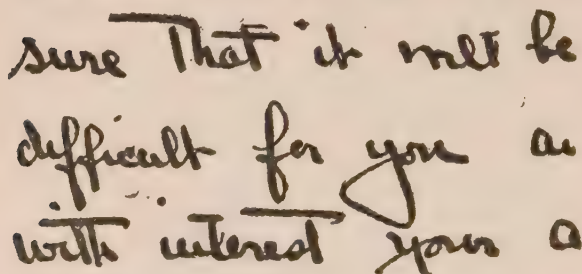 sure that it will be
difficult for you a
with interest your a